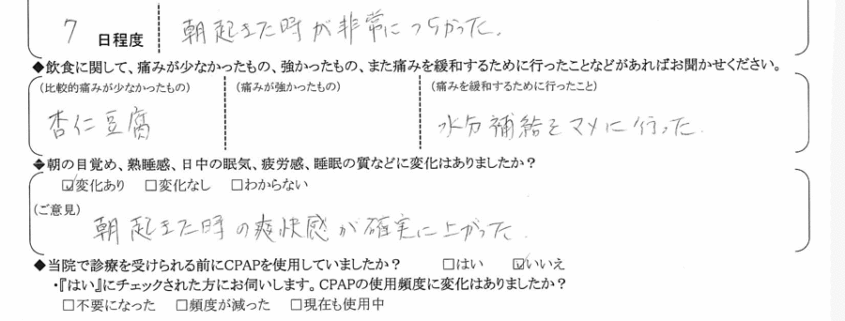 7 日程度 朝起きた時が非常につらかった.
◆飲食に関して、痛みが少なかったもの、強かったもの、また痛みを緩和するために行ったことなどがあればお聞かせください。
(比較的痛みが少なかったもの) (痛みが強かったもの) (痛みを緩和するために行ったこと)
杏仁豆腐 水分補給をマメに行った.
◆朝の目覚め、熟睡感、日中の眠気、疲労感、睡眠の質などに変化はありましたか？
☑変化あり □変化なし □わからない
(ご意見)
朝起きた時の爽快感が確実に上がった.
◆当院で診療を受けられる前にCPAPを使用していましたか？ □はい ☑いいえ
・『はい』にチェックされた方にお伺いします。CPAPの使用頻度に変化はありましたか？
□不要になった □頻度が減った □現在も使用中